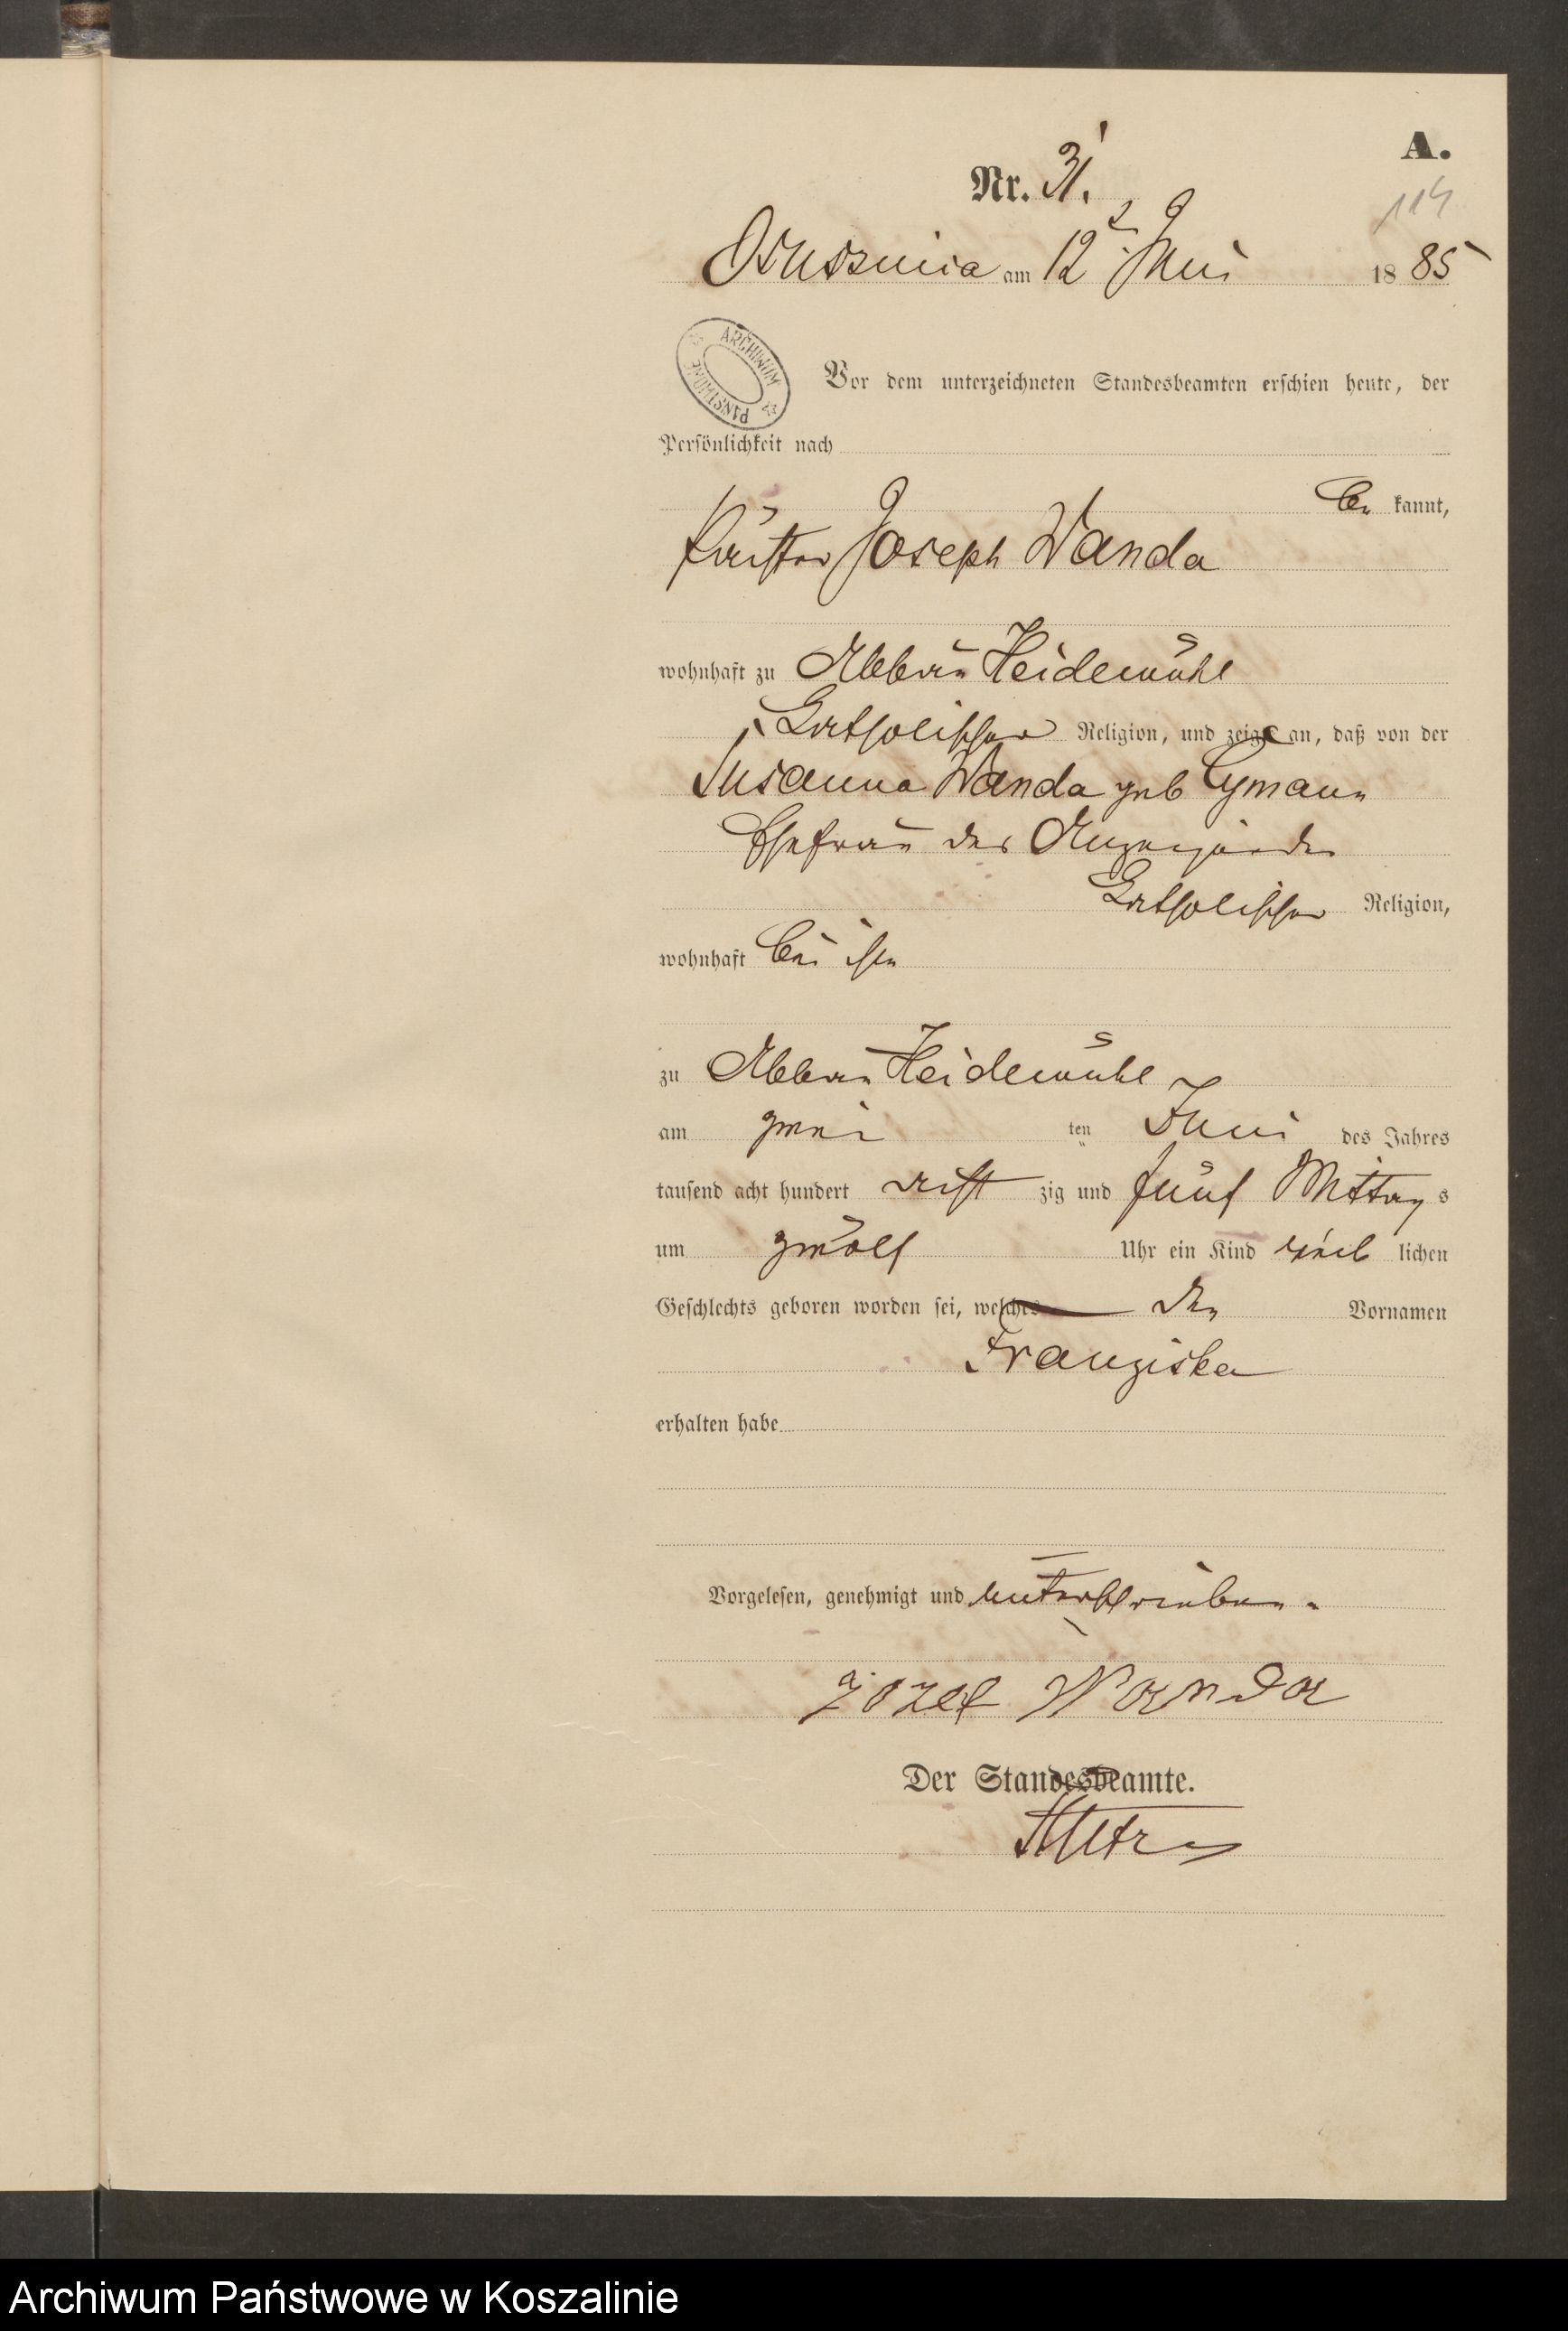 A.
Nr. 31.
114
Ossusznica am 12ᵗ Juni 1885
ARCHIWUM PAŃSTWOWE
Vor dem unterzeichneten Standesbeamten erschien heute, der
Persönlichkeit nach
be kannt,
Joseph Wanda
wohnhaft zu Abbau Heidemühl
katholischer Religion, und zeigte an, daß von der
Susanna Wanda geb Cymann
Ehefrau des Anzeigenden
katholischer Religion,
wohnhaft bei ihm
zu Abbau Heidemühl
am zwei ten Juni des Jahres
tausend acht hundert acht zig und fünf Mittag s
um zwölf Uhr ein Kind weib lichen
Geschlechts geboren worden sei, welches den Vornamen
Franziska
erhalten habe
Vorgelesen, genehmigt und unterschrieben.
Jozef Wanda
Der Standesbeamte.
Archiwum Państwowe w Koszalinie